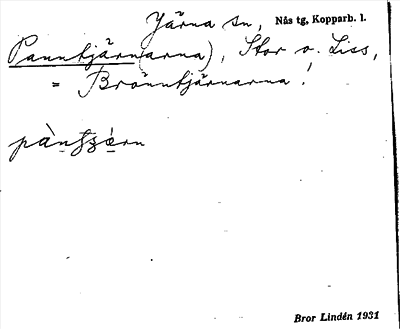 Järna sn, Nås tg, Kopparb. l.
Panntjärn(arna), Stor o. Liss,
= Bränntjärnarna!
Bror Lindén 1931